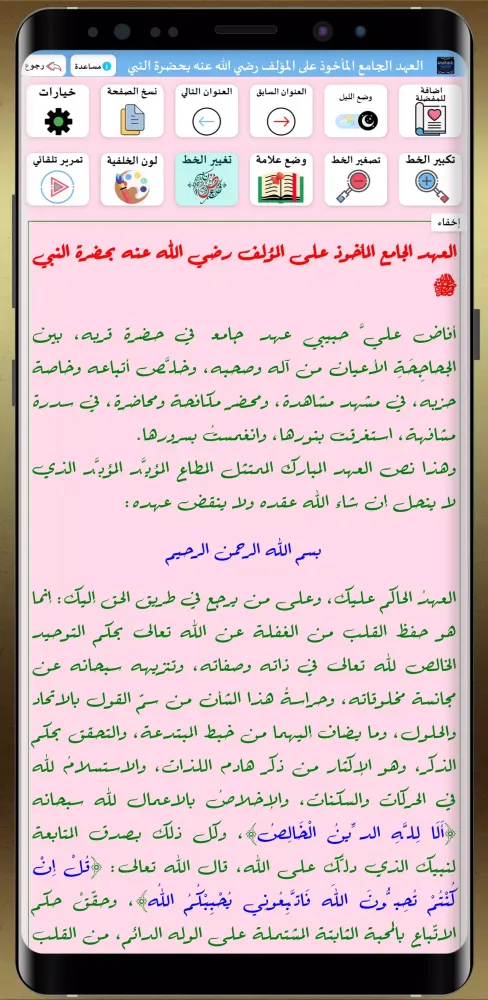 العهد الجامع المأخوذ على المؤلف رضي الله عنه بحضرة النبي
مساعدة
رجوع
اضافة للمفضلة
وضع الليل
العنوان السابق
العنوان التالي
نسخ الصفحة
خيارات
تكبير الخط
تصغير الخط
وضع علامة
تغيير الخط
لون الخلفية
تمرير تلقائي
إخفاء
العهد الجامع المأخوذ على المؤلف رضي الله عنه بحضرة النبي
ﷺ
أفاض عليَّ حبيبي عهد جامع في حضرة قربه، بين
الجحاجِحَةِ الأعيان من آله وصحبه، وخلَّص أتباعه وخاصة
حزبه، في مشهد مشاهدة، ومحضر مكافحة ومحاضرة، في سدرة
مشافهة، استغرقت بنورها، وانغمستُ بسرورها.
وهذا نص العهد المبارك الممتثل المطاع المؤيَّد المؤبَّد الذي
لا ينحل إن شاء الله عقده ولا ينقض عهده:
بسم الله الرحمن الرحيم
العهدُ الحاكم عليك، وعلى من يرجع في طريق الحق إليك: إنما
هو حفظ القلب من الغفلة عن الله تعالى بحكم التوحيد
الخالص لله تعالى في ذاته وصفاته، وتنزيهه سبحانه عن
مجانسة مخلوقاته، وحراسةُ هذا الشأن من سمّ القول بالاتحاد
والحلول، وما يضاف إليهما من خبط المبتدعة، والتحقق بحكم
الذكر، وهو الإكثار من ذكر هادم اللذات، والاستسلامُ لله
في الحركات والسكنات، والإخلاصُ بالاعمال لله سبحانه
﴿أَلَا لِلَّهِ الدِّينُ الْخَالِصُ﴾، وكل ذلك بصدق المتابعة
لنبيك الذي دلَّك على الله، قال الله تعالى: ﴿قُلْ إِنْ
كُنْتُمْ تُحِبُّونَ اللَّهَ فَاتَّبِعُونِي يُحْبِبْكُمُ اللَّهُ﴾، وحقِّقْ حكم
الاتّباع بالمحبة الثابتة المشتملة على الوله الدائم، من القلب